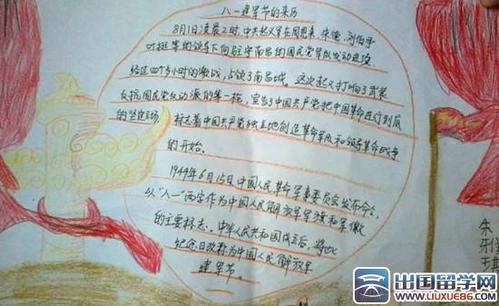 八一建军节的来历
8月1凌晨2时,中共起义军在周恩来、朱德、刘伯承
对挺军的领导下向驻守南昌的国民党军队发动进攻
经过四个多小时的激战,占领了南昌城。这次起义打响了武装
反抗国民党反动派的第一枪,宣告了中国共产党把中国革命进行到底
的坚定立场 标志着中国共产党独立地创造革命军队和领导革命战争
的开始。
1949年6月15日中国人民革命军事委员会发布命令,
以"八一"两字作为中国人民解放军军旗和军徽
的主要标志。中华人民共和国成立后,将此
纪念日改称为中国人民解放军
建军节。
朱
出国留学网
WWW.LIUXUE86.COM